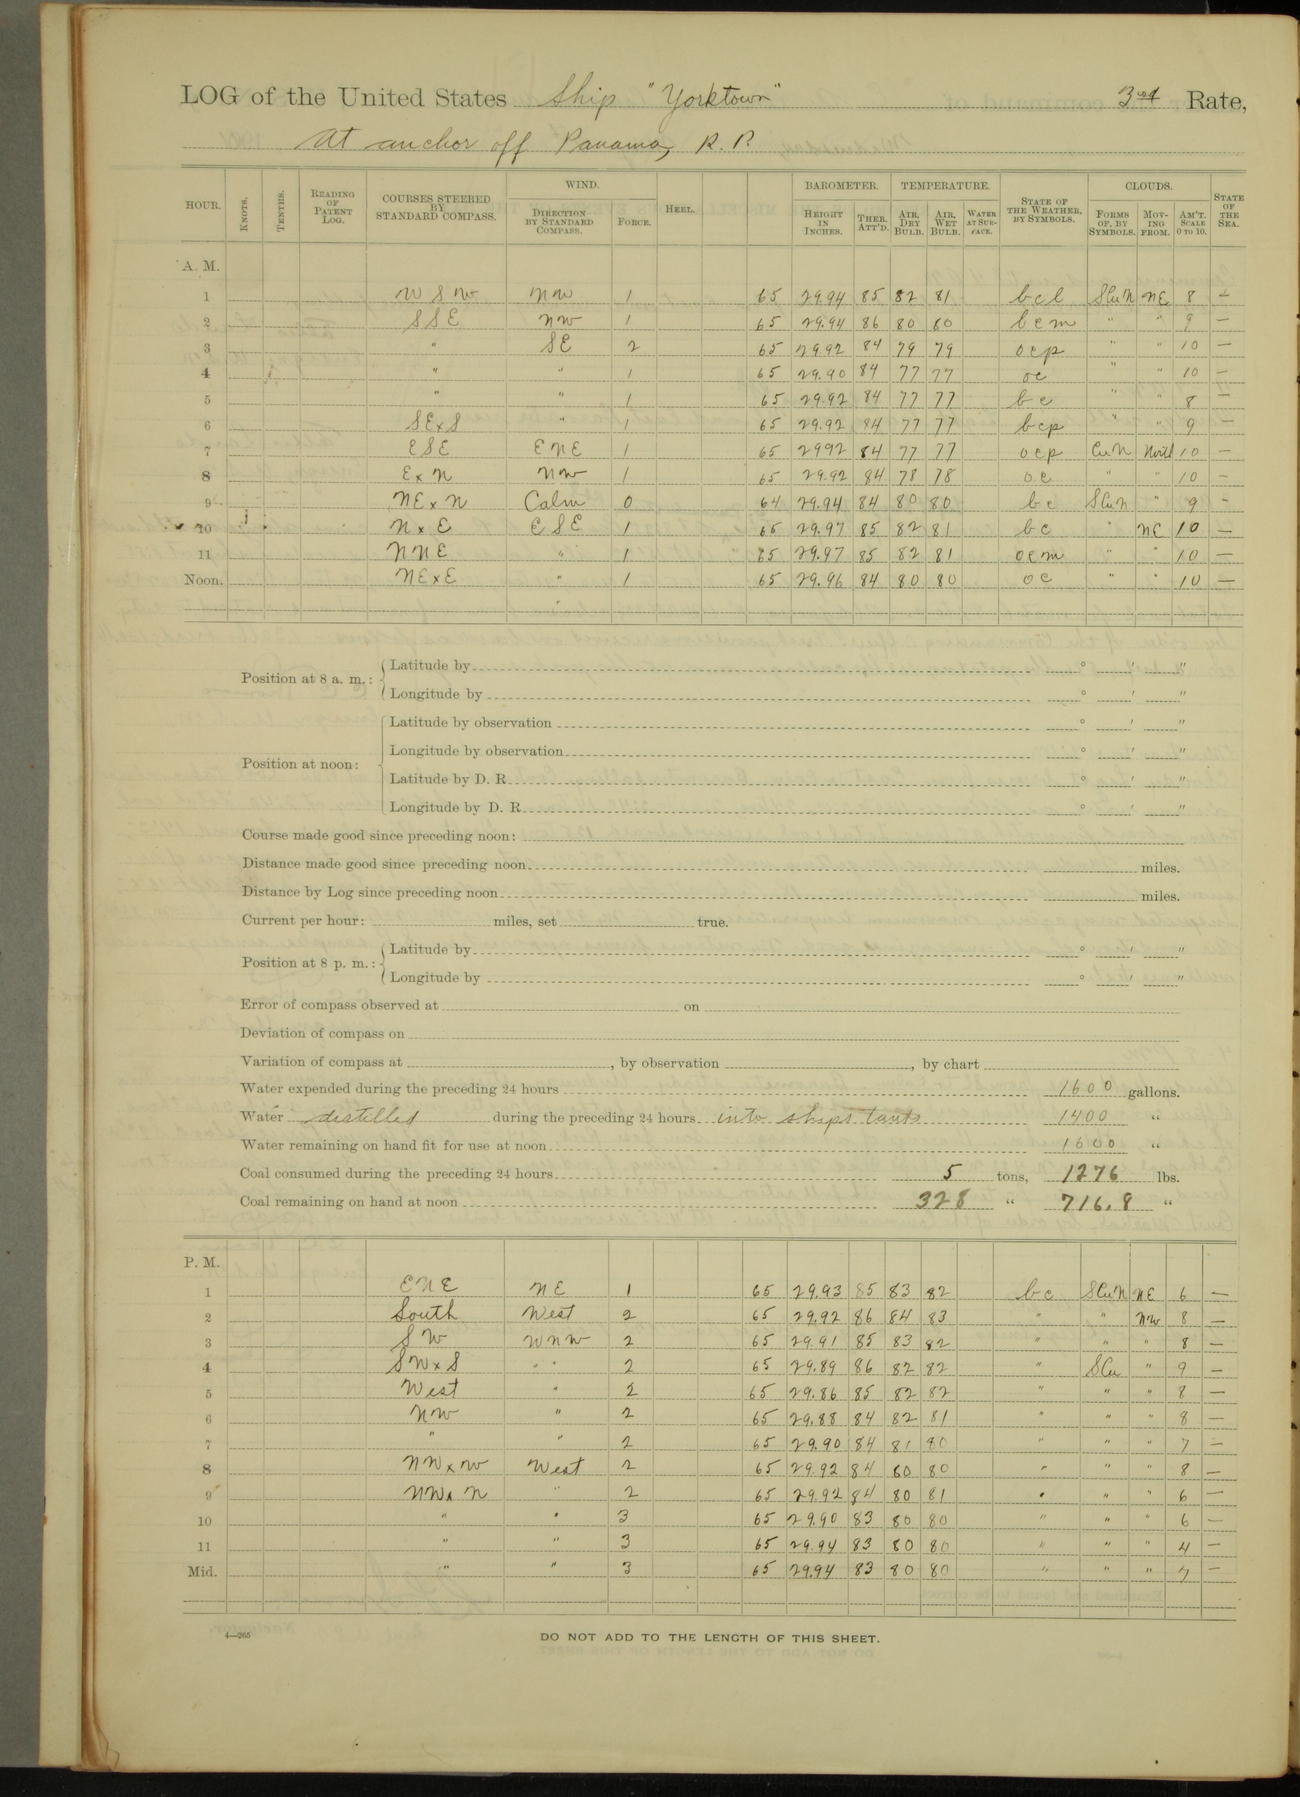 LOG of the United States Ship "Yorktown" 3rd Rate,
At anchor off Panama, R. P.
HOUR. KNOTS. TENTHS. READING OF PATENT LOG. COURSES STEERED BY STANDARD COMPASS. WIND. DIRECTION BY STANDARD COMPASS. FORCE. HEEL. BAROMETER. HEIGHT IN INCHES. THER. ATT'D. TEMPERATURE. AIR, DRY BULB. AIR, WET BULB. WATER AT SURFACE. STATE OF THE WEATHER, BY SYMBOLS. CLOUDS. FORMS OF, BY SYMBOLS. MOVING FROM. AM'T. SCALE 0 TO 10. STATE OF THE SEA.
A. M.
1 W S W NW 1 65 29.94 85 82 81 bcl SCuN NE 8 —
2 SSE NW 1 65 29.94 86 80 80 bcm " " 9 —
3 " SE 2 65 29.92 84 79 79 ocp " " 10 —
4 " " 1 65 29.90 84 77 77 oc " " 10 —
5 " " 1 65 29.92 84 77 77 bc " " 8 —
6 SExS " 1 65 29.92 84 77 77 bcp " " 9 —
7 ESE ENE 1 65 2992 84 77 77 ocp CuN 10 —
8 ExN NW 1 65 29.92 84 78 78 oc " " 10 —
9 NExN Calm 0 64 29.94 84 80 80 bc SCuN " 9 —
10 NxE ESE 1 65 29.97 85 82 81 bc " NE 10 —
11 NNE " 1 65 29.97 85 82 81 ocm " " 10 —
Noon. NExE " 1 65 29.96 84 80 80 oc " " 10 —
Position at 8 a. m.: Latitude by ° ' "
Longitude by ° ' "
Position at noon: Latitude by observation ° ' "
Longitude by observation ° ' "
Latitude by D. R. ° ' "
Longitude by D. R. ° ' "
Course made good since preceding noon:
Distance made good since preceding noon miles.
Distance by Log since preceding noon miles.
Current per hour: miles, set true.
Position at 8 p. m.: Latitude by ° ' "
Longitude by ° ' "
Error of compass observed at on
Deviation of compass on
Variation of compass at , by observation , by chart
Water expended during the preceding 24 hours 1600 gallons.
Water distilled during the preceding 24 hours into ships tanks 1400 "
Water remaining on hand fit for use at noon 1600 "
Coal consumed during the preceding 24 hours 5 tons, 1276 lbs.
Coal remaining on hand at noon 328 " 716.8 "
P. M.
1 ENE NE 1 65 29.93 85 83 82 bc SCuN NE 6 —
2 South West 2 65 29.92 86 84 83 " " NW 8 —
3 SW WNW 2 65 29.91 85 83 82 " " " 8 —
4 SWxS " " 2 65 29.89 86 82 82 " SCu " 9 —
5 West " 2 65 29.86 85 82 82 " " " 8 —
6 NW " 2 65 29.88 84 82 81 " " " 8 —
7 " " 2 65 29.90 84 81 80 " " " 7 —
8 NWxW West 2 65 29.92 84 80 80 " " " 8 —
9 NWxN " 2 65 29.92 84 80 81 " " " 6 —
10 " " 3 65 29.90 83 80 80 " " " 6 —
11 " " 3 65 29.94 83 80 80 " " " 4 —
Mid. " " 3 65 29.94 83 80 80 " " " 7 —
4—265
DO NOT ADD TO THE LENGTH OF THIS SHEET.